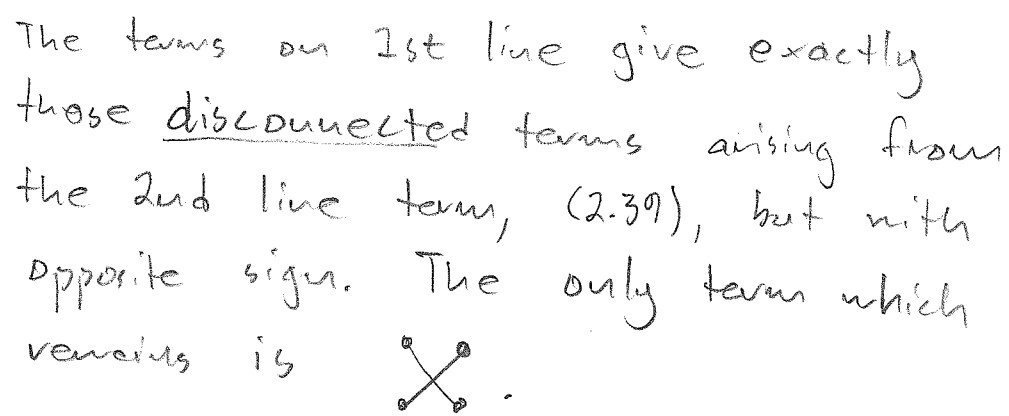 The terms on 1st line give exactly
those disconnected terms arising from
the 2nd line term, (2.39), but with
opposite sign. The only term which
remains is .